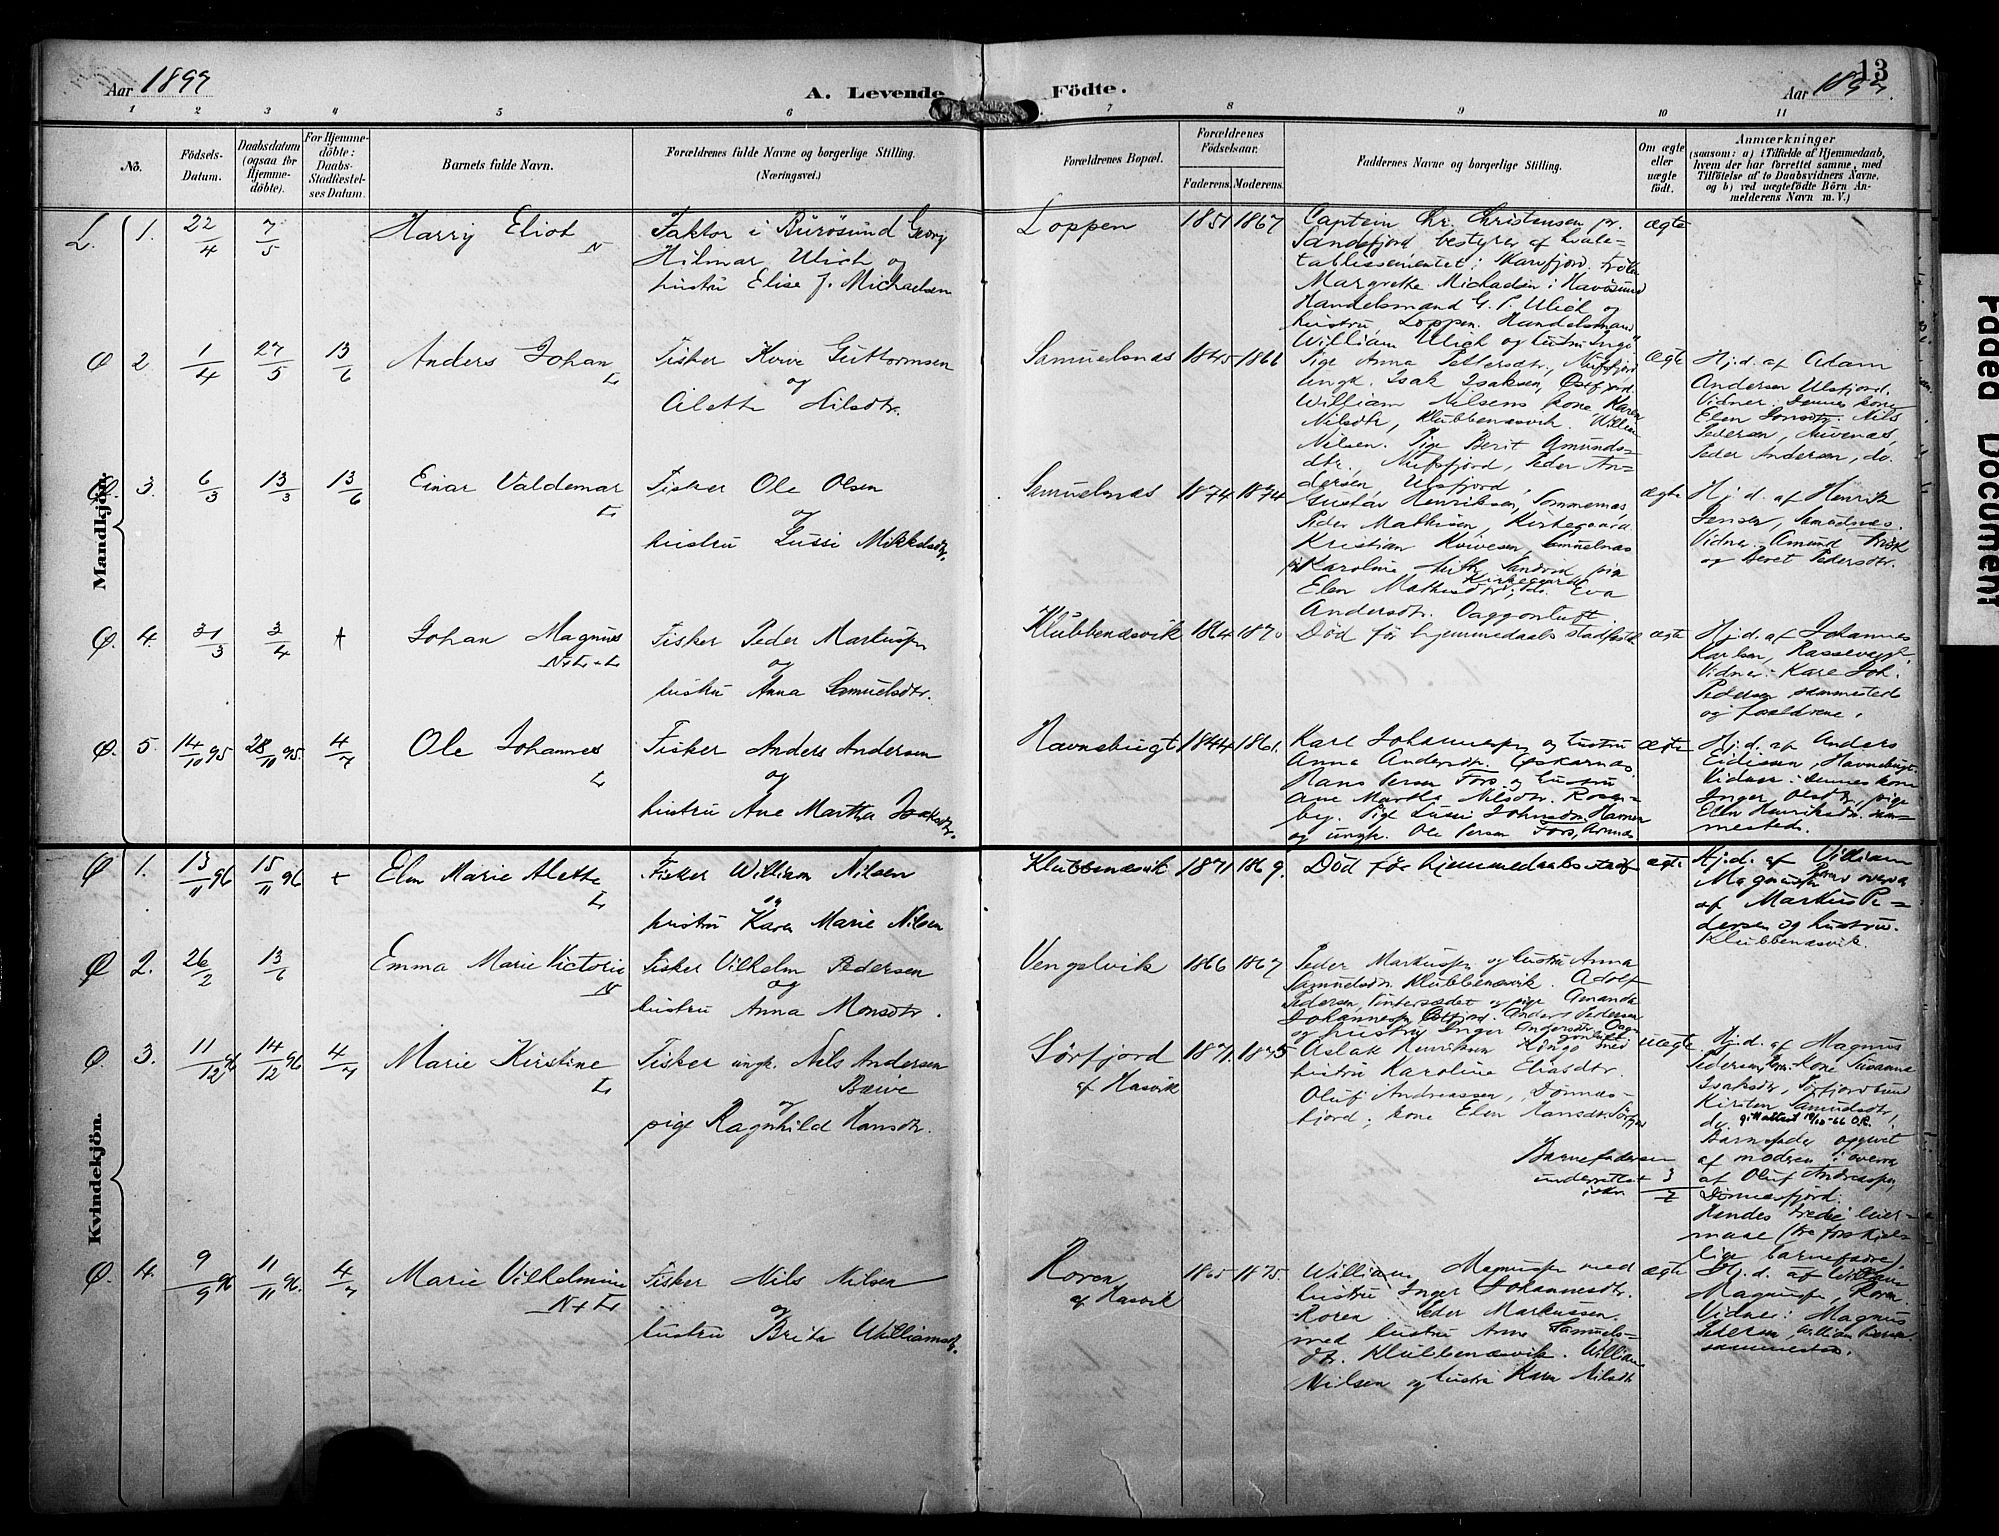 Aar 1897
A. Levende Födte.
Aar 1897.
13
1 2 3 4 5 6 7 8 9 10 11
No.
Födsels-
Datum.
Daabsdatum
(ogsaa for
Hjemme-
döbte).
For Hjemme-
döbte:
Daabs-
Stadfæstel-
ses Datum.
Barnets fulde Navn.
Forældrenes fulde Navne og borgerlige Stilling.
(Næringsvei.)
Forældrenes Bopæl.
Forældrenes
Födselsaar.
Faderens. Moderens.
Faddernes Navne og borgerlige Stilling.
Om ægte
eller
uægte
födt.
Anmærkninger
(saasom: a) i Tilfælde af Hjemmedaab,
hvem der har forrettet samme, med
Tilföielse af to Daabsvidners Navne,
og b) ved uægtefödte Börn An-
melderens Navn m. V.)
Mandkjön.
L. 1. 22/4 7/5 Harry Eliot N
Faktor i Burösund Georg
Hilmar Ulich og
hustru Elise J. Michaelsen
Loppen 1851 1867
Captein Chr. Christensen pr.
Sandefjord bestyrer af hvale-
tablissementet i
Margrethe Michaelsen i Havösund
Handelsmand G. P. Ulich og
hustru, Loppen. Handelsmand
William Ulich og hustru
ægte
Ø 2 1/4 27/5 13/6 Anders Johan L
Fisker Guttormsen
og
Alette Nilsdtr.
Samuelsnæs 1845 1861
Pige Anna Pettersdtr.,
Ungk. Isak Isaksen, Östfjord
William Nilsens kone Karen
Nilsdtr, Klubbenæsvik. William
Nilsen. Pige Berit Amunds-
dtr., Peder An-
dersen, Ulsfjord
ægte
Hj.d. af Adam
Andersen Ulsfjord.
Vidner: dennes kone
Elen Nils
Pedersen,
Peder Andersen, do.
Ø. 3. 6/3 13/3 13/6 Einar Valdemar L
Fisker Ole Olsen
og
hustru Lussi Mikkelsdtr.
Samuelsnæs 1874 1874
Gustav Henriksen,
Peder Mathisen, Kirkegaard
Kristian Samuelnæs
Karoline pige
Elen Mathisdtr, Kirkegaard do. Eva
Andersdtr.
ægte
Hj.d. af Henrik
Jensen, Samuelnæs.
Vidner Amund
og Beret Pedersdtr.
Ø. 4. 31/3 3/4 + Johan Magnus N+L+L
Fisker Peder Markusen
og
hustru Anna Samuelsdtr.
Klubbenæsvik 1864 1870
Død før hjemmedaabs stadfæst
ægte
Hj.d. af Johannes
Karlsen,
Vidner: Kare Joh.
Pedersen sammesteds
og forældrene.
Ø. 5. 14/10 95 28/11 95. 4/7 Ole Johannes L
Fisker Anders Andersen
og
hustru Ane Martha Isaksdtr.
Havnebugt 1844 1861.
Karl Johannesen og hustru
Anna Andersdtr.
Hans Persen Fors og hustru
Ane Marthe Nilsdtr.
Pige Lussi Johnsdtr Havnen
og ungk. Ole Persen Fors,
ægte
Hj.d. af Anders
Eidissen, Havnebugt.
Vidner: dennes kone
Inger Olsdtr, pige
Elen Henriksdtr. sam-
mesteds.
Kvindekjön.
Ø 1. 13/11 96 15/11 96 + Elen Marie Alette L
Fisker William Nilsen
og
hustru Karen Marie Nilsen
Klubbenæsvik 1871 1869.
Død før hjemmedaabs stadf
ægte
Hj.d. af William
Magnusen Roren overv
af Markus Pe-
dersen og hustru.
Klubbenæsvik.
Ø 2. 26/2 13/6 Emma Marie Victoria N
Fisker Vilhelm Pedersen
og
hustru Anna Monsdtr.
Vengelvik 1866 1867
Peder Markusen og hustru Anna
Samuelsdtr. Klubbenæsvik. Adolf
Pedersen, Vintersædet og pige Amanda
Johannesen Östfjord. Anders Pedersen
og hustru Inger Andersdtr
Ø. 3. 11/12 96 14/12 96 4/7 Marie Kirstine L
Fisker ungk. Nils Andersen
Bærve
og
pige Ragnhild Hansdtr.
Sörfjord
af Hasvik
1871. 1875
Aslak Henriksen med
hustru Karoline Eliasdtr.
Oluf Andreassen, Dönnes-
fjord; kone Elen Hansdtr Sörfjord
Barnefaderen
underrettet 3/7
uægte
Hj.d. af Magnus
Pedersen, kone Susanna
Isaksdtr, Sörfjordbund
Kirsten Samuelsdtr,
do. g. Attest 19/10-66 O.R.
Barnefader opgivet
af moderen i overvær
af Oluf Andreassen,
Dönnesfjord.
Hendes tredie leier-
maal (tre forskjel-
lige barnefædre).
Ø. 4. 9/9 96 11/11 96. 4/7 Marie Vilhelmine N+L
Fisker Nils Nilsen
og
hustru Brita Williamsdtr.
Roren
af Hasvik
1865 1875.
William Magnusen med
hustru Inger Johannesdtr.
Roren Peder Markussen
med hustru Anne Samuels-
dtr. Klubbenæsvik. William
Nilsen og hustru Karen Nilsdtr
ægte
Hj.d. af William
Magnusen, Roren.
Vidne: Magnus
Pedersen, William
sammesteds.
Paged Document